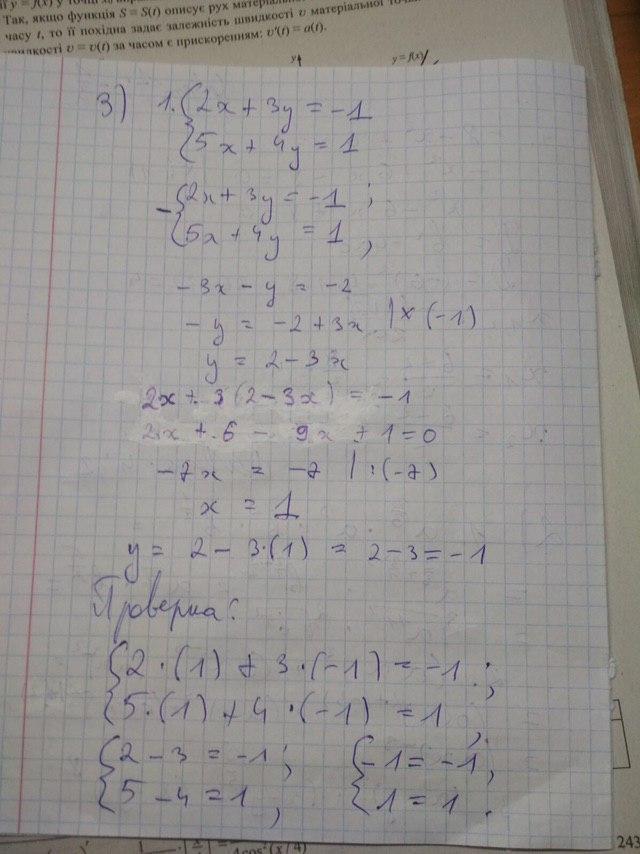 Так, якщо функція S = S(t) описує рух матеріальної
часу t, то її похідна задає залежність швидкості υ матеріальної
швидкості υ = υ(t) за часом є прискоренням: υ'(t) = a(t).
y
y = f(x)
3) 1. {2x + 3y = -1
{5x + 4y = 1
- {2x + 3y = -1 ;
{5x + 4y = 1 ,
- 3x - y = -2
- y = -2 + 3x | × (-1)
y = 2 - 3x
2x + 3(2 - 3x) = -1
2x + 6 - 9x + 1 = 0
-7x = -7 | : (-7)
x = 1
y = 2 - 3·(1) = 2 - 3 = -1
Проверка:
{2·(1) + 3·(-1) = -1 ;
{5·(1) + 4·(-1) = 1 ,
{2 - 3 = -1 ; {-1 = -1 ,
{5 - 4 = 1 , {1 = 1 .
243